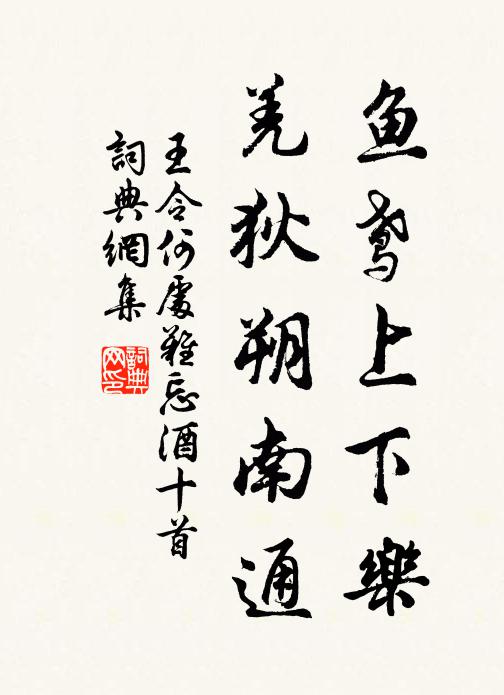 鱼鸢上下樂
羌狄朔南通
王令何處難忘酒十首
詞典網集
詞典网印